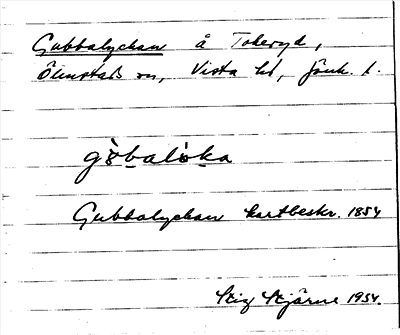 Gubbalyckan å Tokeryd,
Ölmstads sn, Vista hd, Jönk. l.
gòbalỳka
Gubbalyckan kartbeskr. 1854
Stig Stjärne 1954.